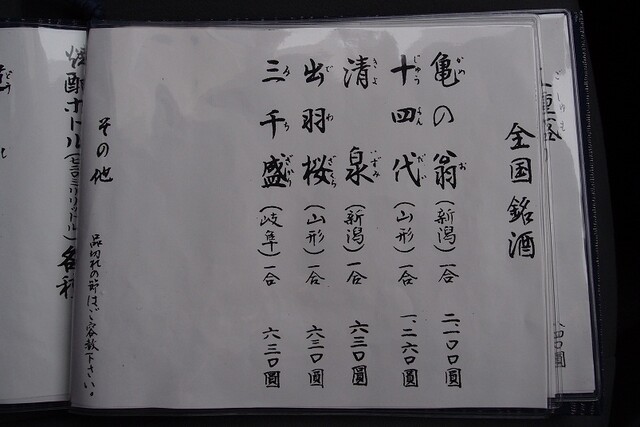 全国銘酒
亀の翁(新潟)一合 二、一〇〇圓
十四代(山形)一合 一、二六〇圓
清泉(新潟)一合 六三〇圓
出羽桜(山形)一合 六三〇圓
三千盛(岐阜)一合 六三〇圓
その他
品切れの節はご容赦下さい。
焼酎ボトル(七二〇ミリリットル)各種